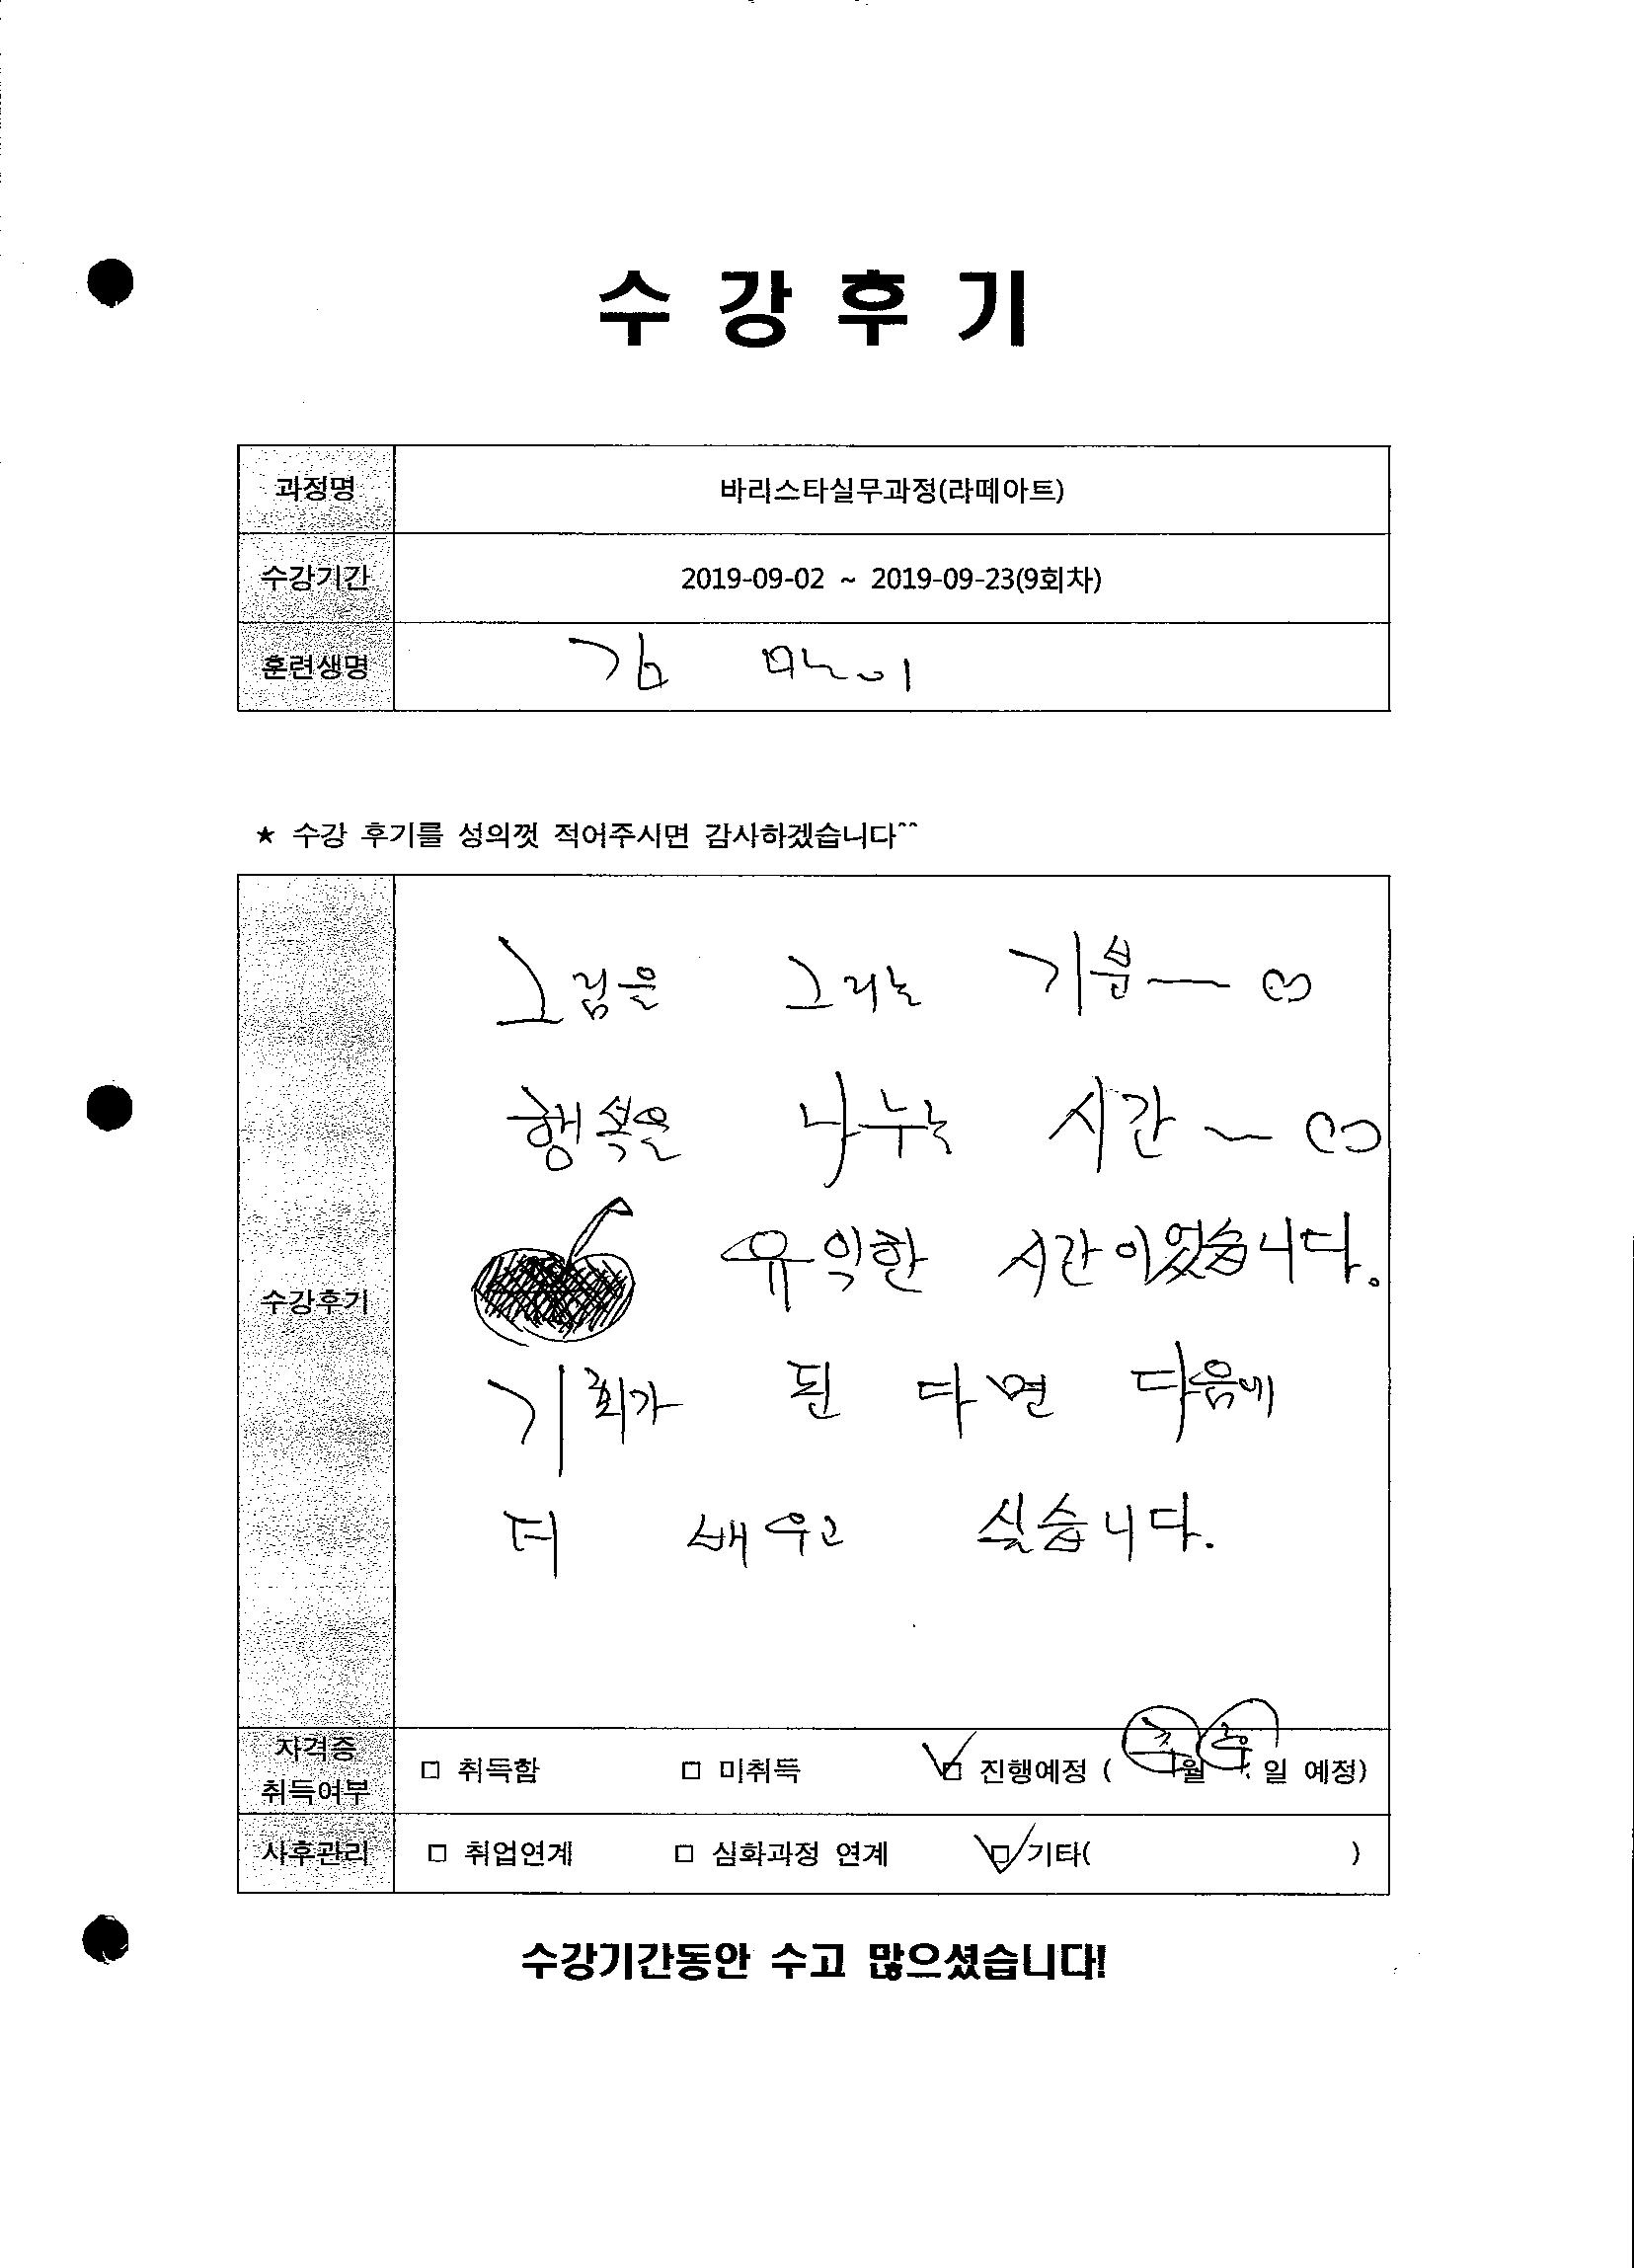 수 강 후 기
과정명 바리스타실무과정(라떼아트)
수강기간 2019-09-02 ~ 2019-09-23(9회차)
훈련생명 김
★ 수강 후기를 성의껏 적어주시면 감사하겠습니다^^
그림을 그리는 기분~
행복을 나누는 시간~
유익한 시간이었습니다.
수강후기
기회가 된 다면 다음에
더 배우고 싶습니다.
자격증 취득여부 □ 취득함 □ 미취득 □ 진행예정 ( 추 월 후 일 예정)
사후관리 □ 취업연계 □ 심화과정 연계 □ 기타( )
수강기간동안 수고 많으셨습니다!